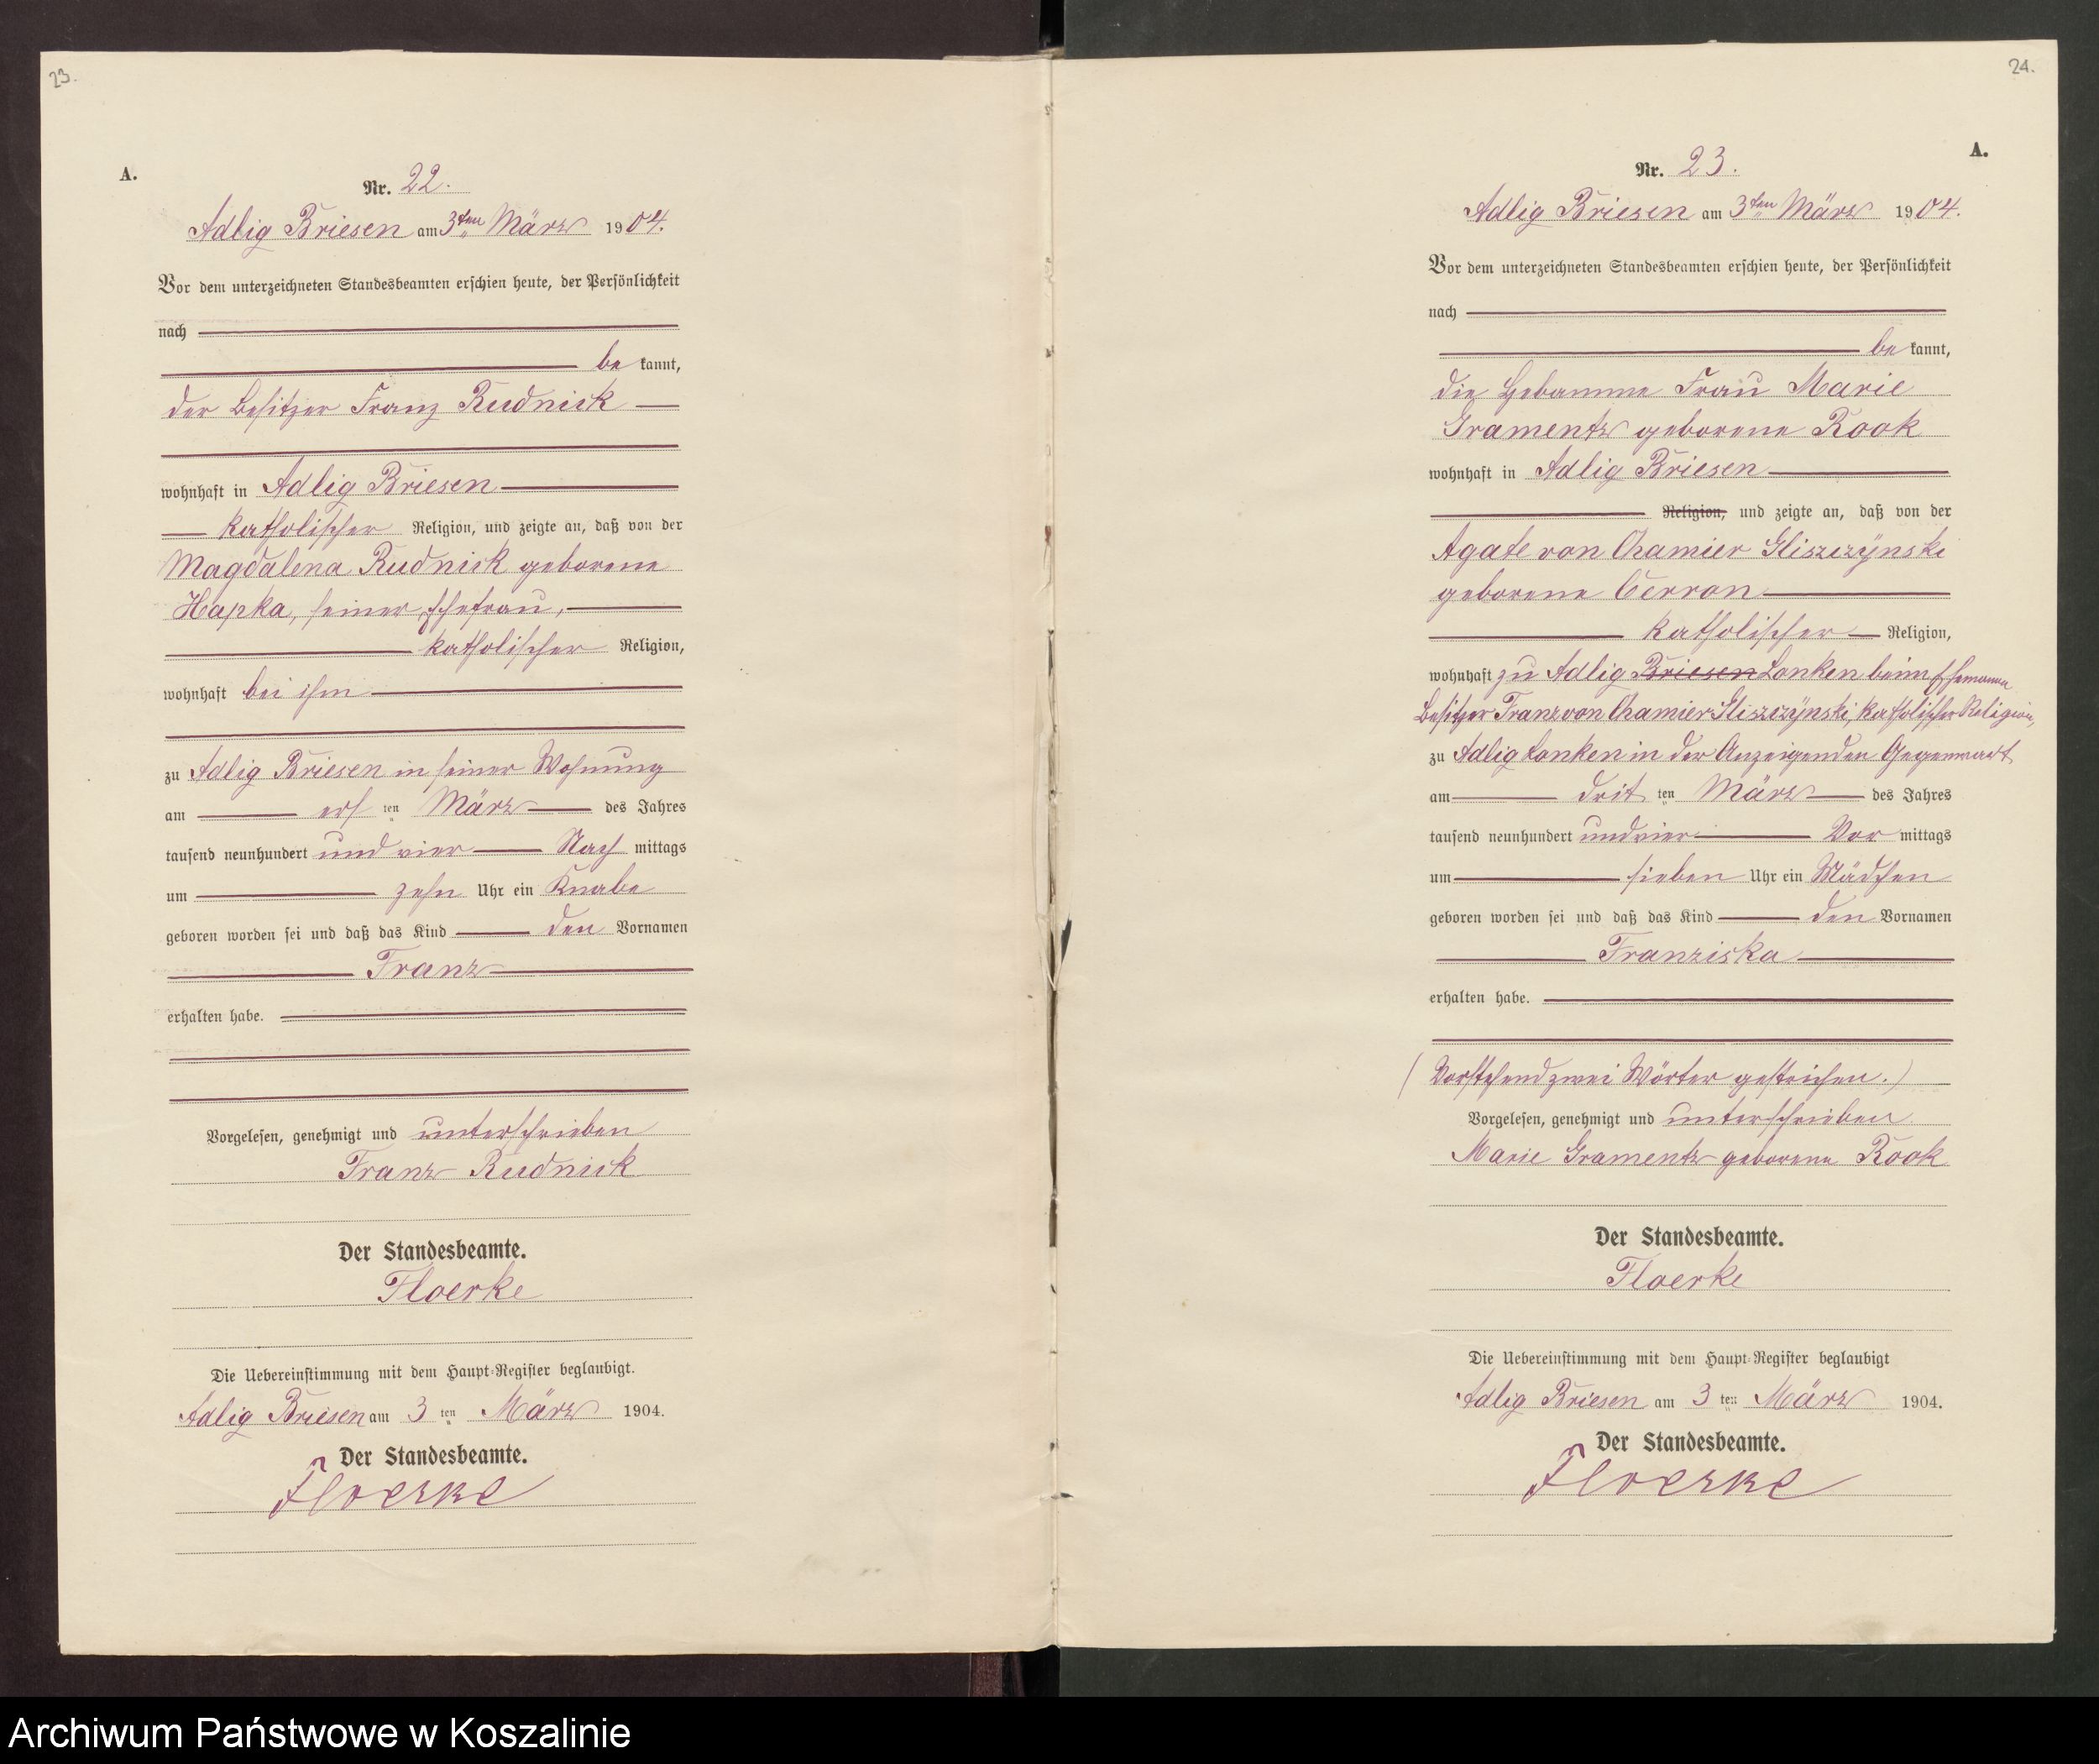 23.
A.
Nr. 22.
Adlig Briesen am 3ten März 1904.
Vor dem unterzeichneten Standesbeamten erschien heute, der Persönlichkeit
nach
be kannt,
der Besitzer Franz Rudnick
wohnhaft in Adlig Briesen
katholischer Religion, und zeigte an, daß von der
Magdalena Rudnick geborene
Hapka, seiner Ehefrau,
katholischer Religion,
wohnhaft bei ihm
zu Adlig Briesen in seiner Wohnung
am ersten März des Jahres
tausend neunhundert und vier Nach mittags
um zehn Uhr ein Knabe
geboren worden sei und daß das Kind den Vornamen
Franz
erhalten habe.
Vorgelesen, genehmigt und unterschrieben
Franz Rudnick
Der Standesbeamte.
Floerke
Die Uebereinstimmung mit dem Haupt-Register beglaubigt.
Adlig Briesen am 3 ten März 1904.
Der Standesbeamte.
Floerke
24.
A.
Nr. 23.
Adlig Briesen am 3ten März 1904.
Vor dem unterzeichneten Standesbeamten erschien heute, der Persönlichkeit
nach
be kannt,
die Hebamme Frau Marie
Gramentz geborene Rook
wohnhaft in Adlig Briesen
Religion, und zeigte an, daß von der
Agate von Chamier Gliszczÿnski
geborene Cerron
katholischer Religion,
wohnhaft zu Adlig Briesen Lonken beim Ehemann
Besitzer Franz von Chamier Gliszczÿnski, katholischer Religion,
zu Adlig Lonken in der Anzeigenden Gegenwart
am dritten März des Jahres
tausend neunhundert und vier Vor mittags
um sieben Uhr ein Mädchen
geboren worden sei und daß das Kind den Vornamen
Franziska
erhalten habe.
(Vorstehend zwei Wörter gestrichen.)
Vorgelesen, genehmigt und unterschrieben
Marie Gramentz geborene Rook
Der Standesbeamte.
Floerke
Die Uebereinstimmung mit dem Haupt-Register beglaubigt
Adlig Briesen am 3 ten März 1904.
Der Standesbeamte.
Floerke
Archiwum Państwowe w Koszalinie